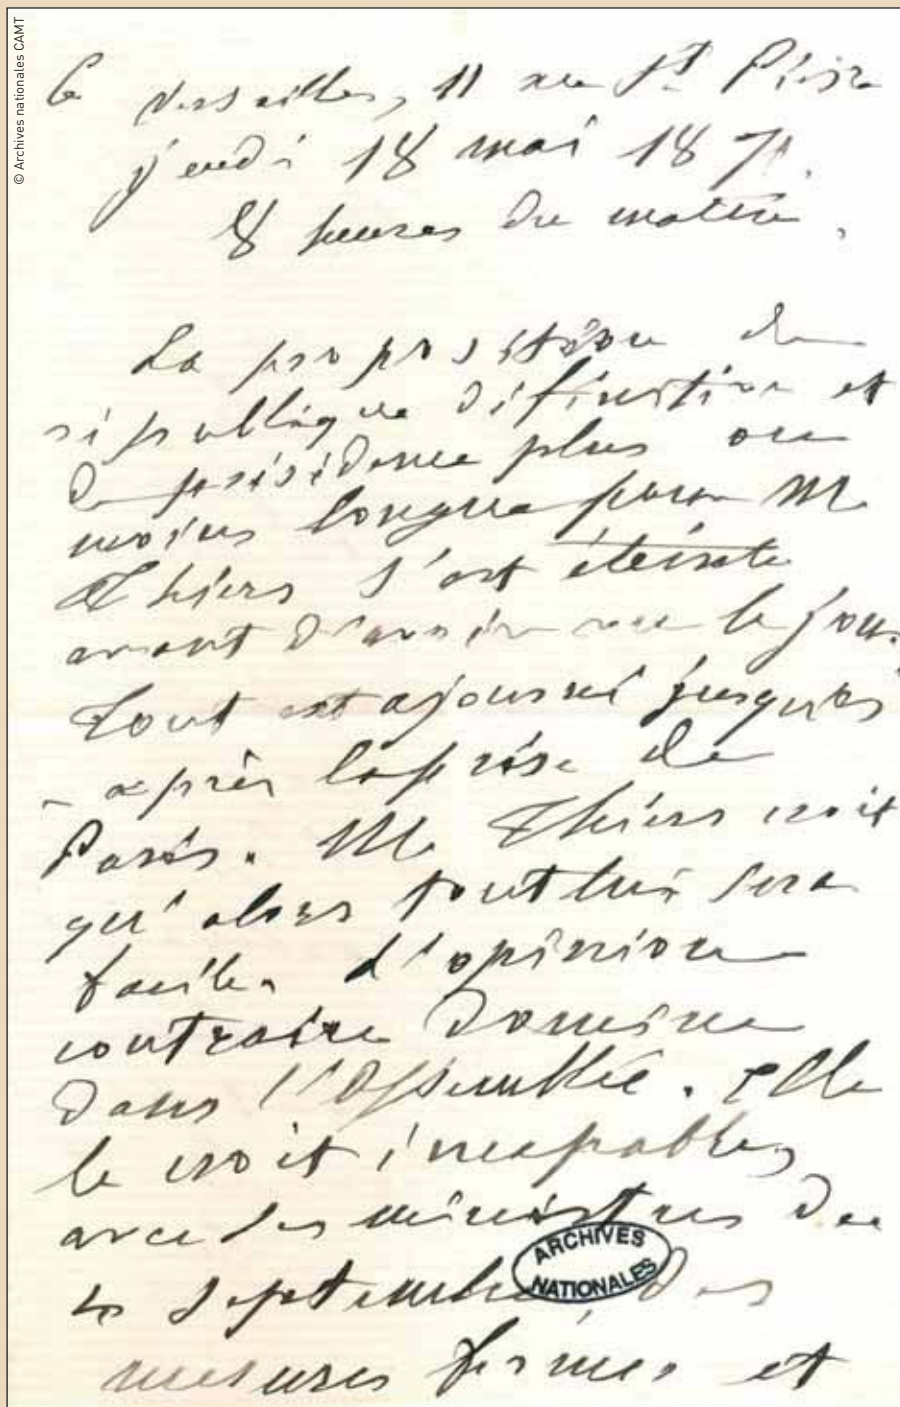 © Archives nationales CAMT
Versailles, 11 rue St Pierre
jeudi 18 mai 1871.
8 heures du matin,
La proposition de
république définitive et
de présidence plus ou
moins longue pour M
Thiers s'est éteinte
avant d'avoir vu le jour.
Tout est ajourné jusques
après la prise de
Paris. M Thiers croit
qu'alors tout lui sera
facile. L'opinion
contraire domine
dans l'Assemblée. Elle
le croit incapable,
avec ses ministres du
4 septembre, des
mesures fermes et
ARCHIVES
NATIONALES